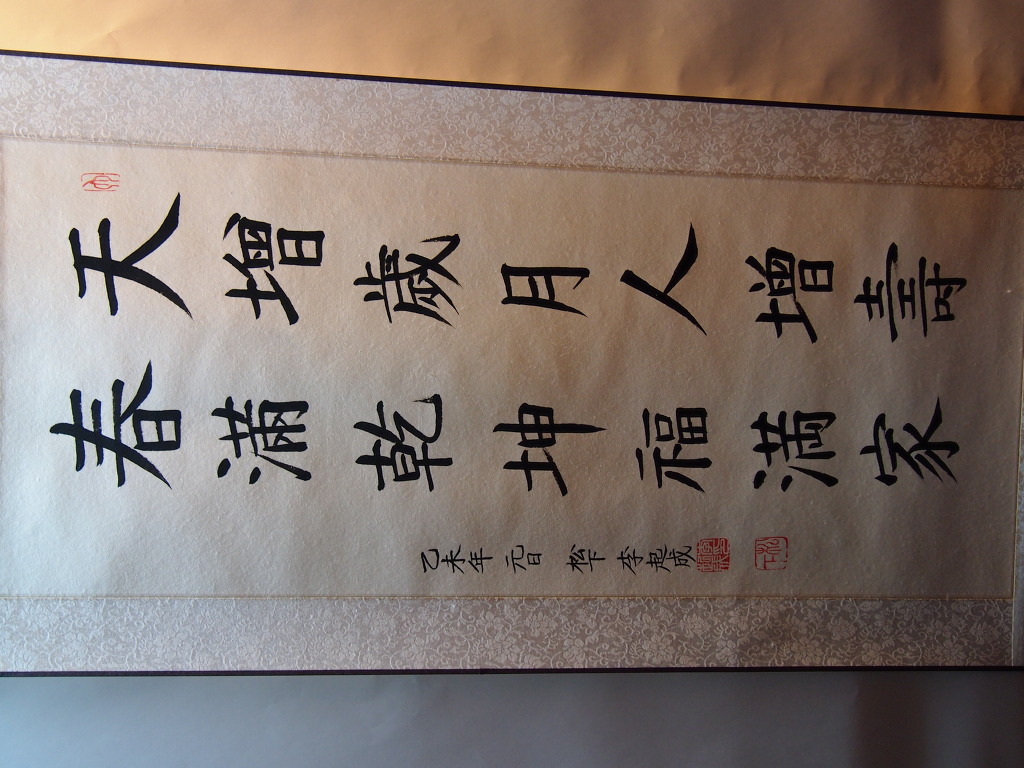 天增歲月人增壽
春滿乾坤福滿家
乙未年 元日 松下 李起成